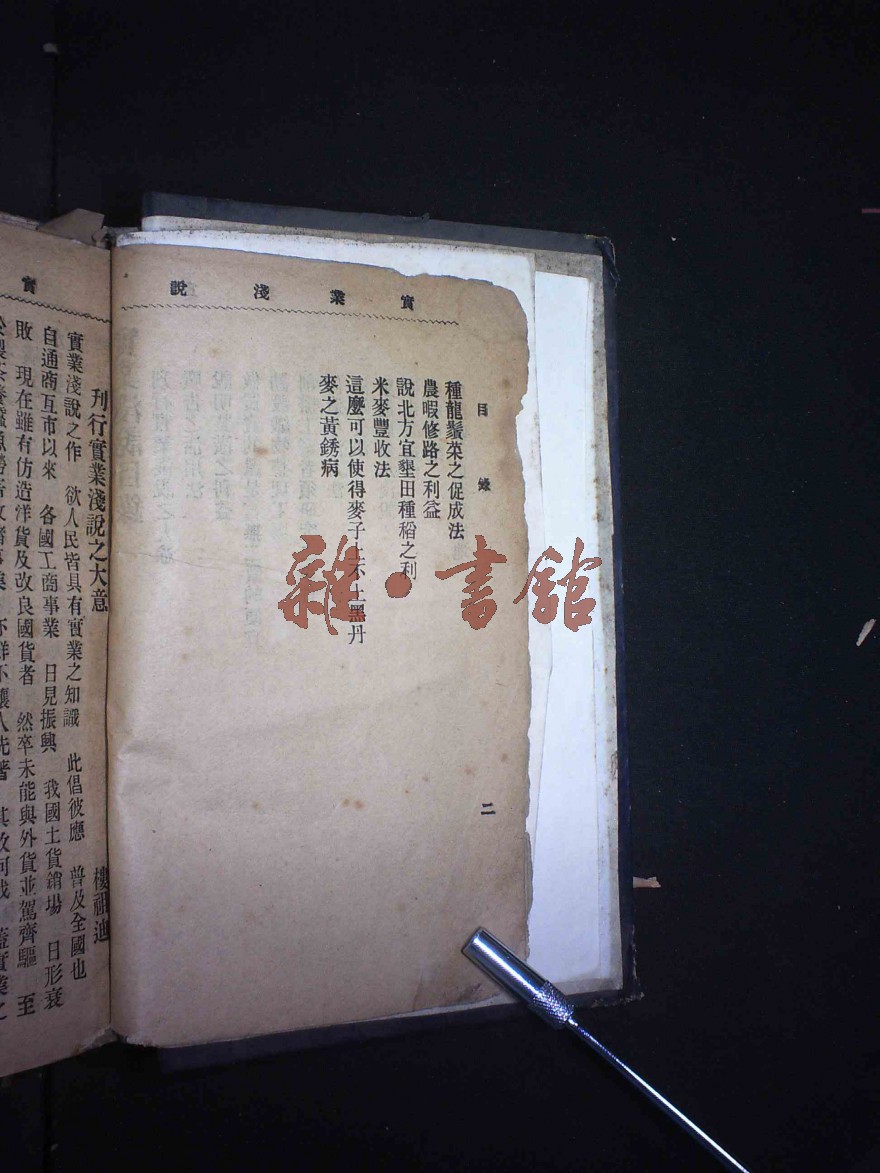 實業淺說
目錄
二
種龍鬚菜之促成法
農暇修路之利益
說北方宜墾田種稻之利
米麥豐收法
這麼可以使得麥子上不上黑丹
麥之黃銹病
雜·書館
實
刊行實業淺說之大意
樓祖迪
實業淺說之作 欲人民皆具有實業之知識 此倡彼應 普及全國也
自通商互市以來 各國工商事業 日見振興 我國土貨銷場 日形衰
敗 現在雖有仿造洋貨及改良國貨者 然卒未能與外貨並駕齊驅 至